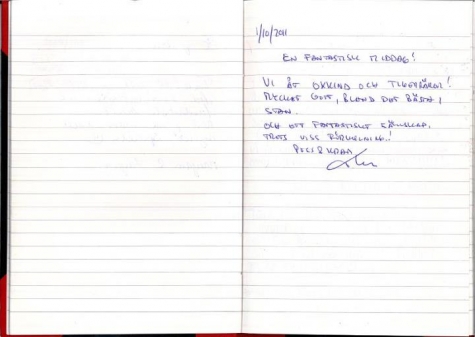 1/10/2011
EN FANTASTISK MIDDAG!
VI ÅT OXKIND OCH TIGERRÄKOR!
MYCKET GOTT, BLAND DET BÄSTA I
STAN.
OCH ETT FANTASTISKT SÄLLSKAP,
TROTS VISS FÖRKYLNING!
PUSS & KRAM